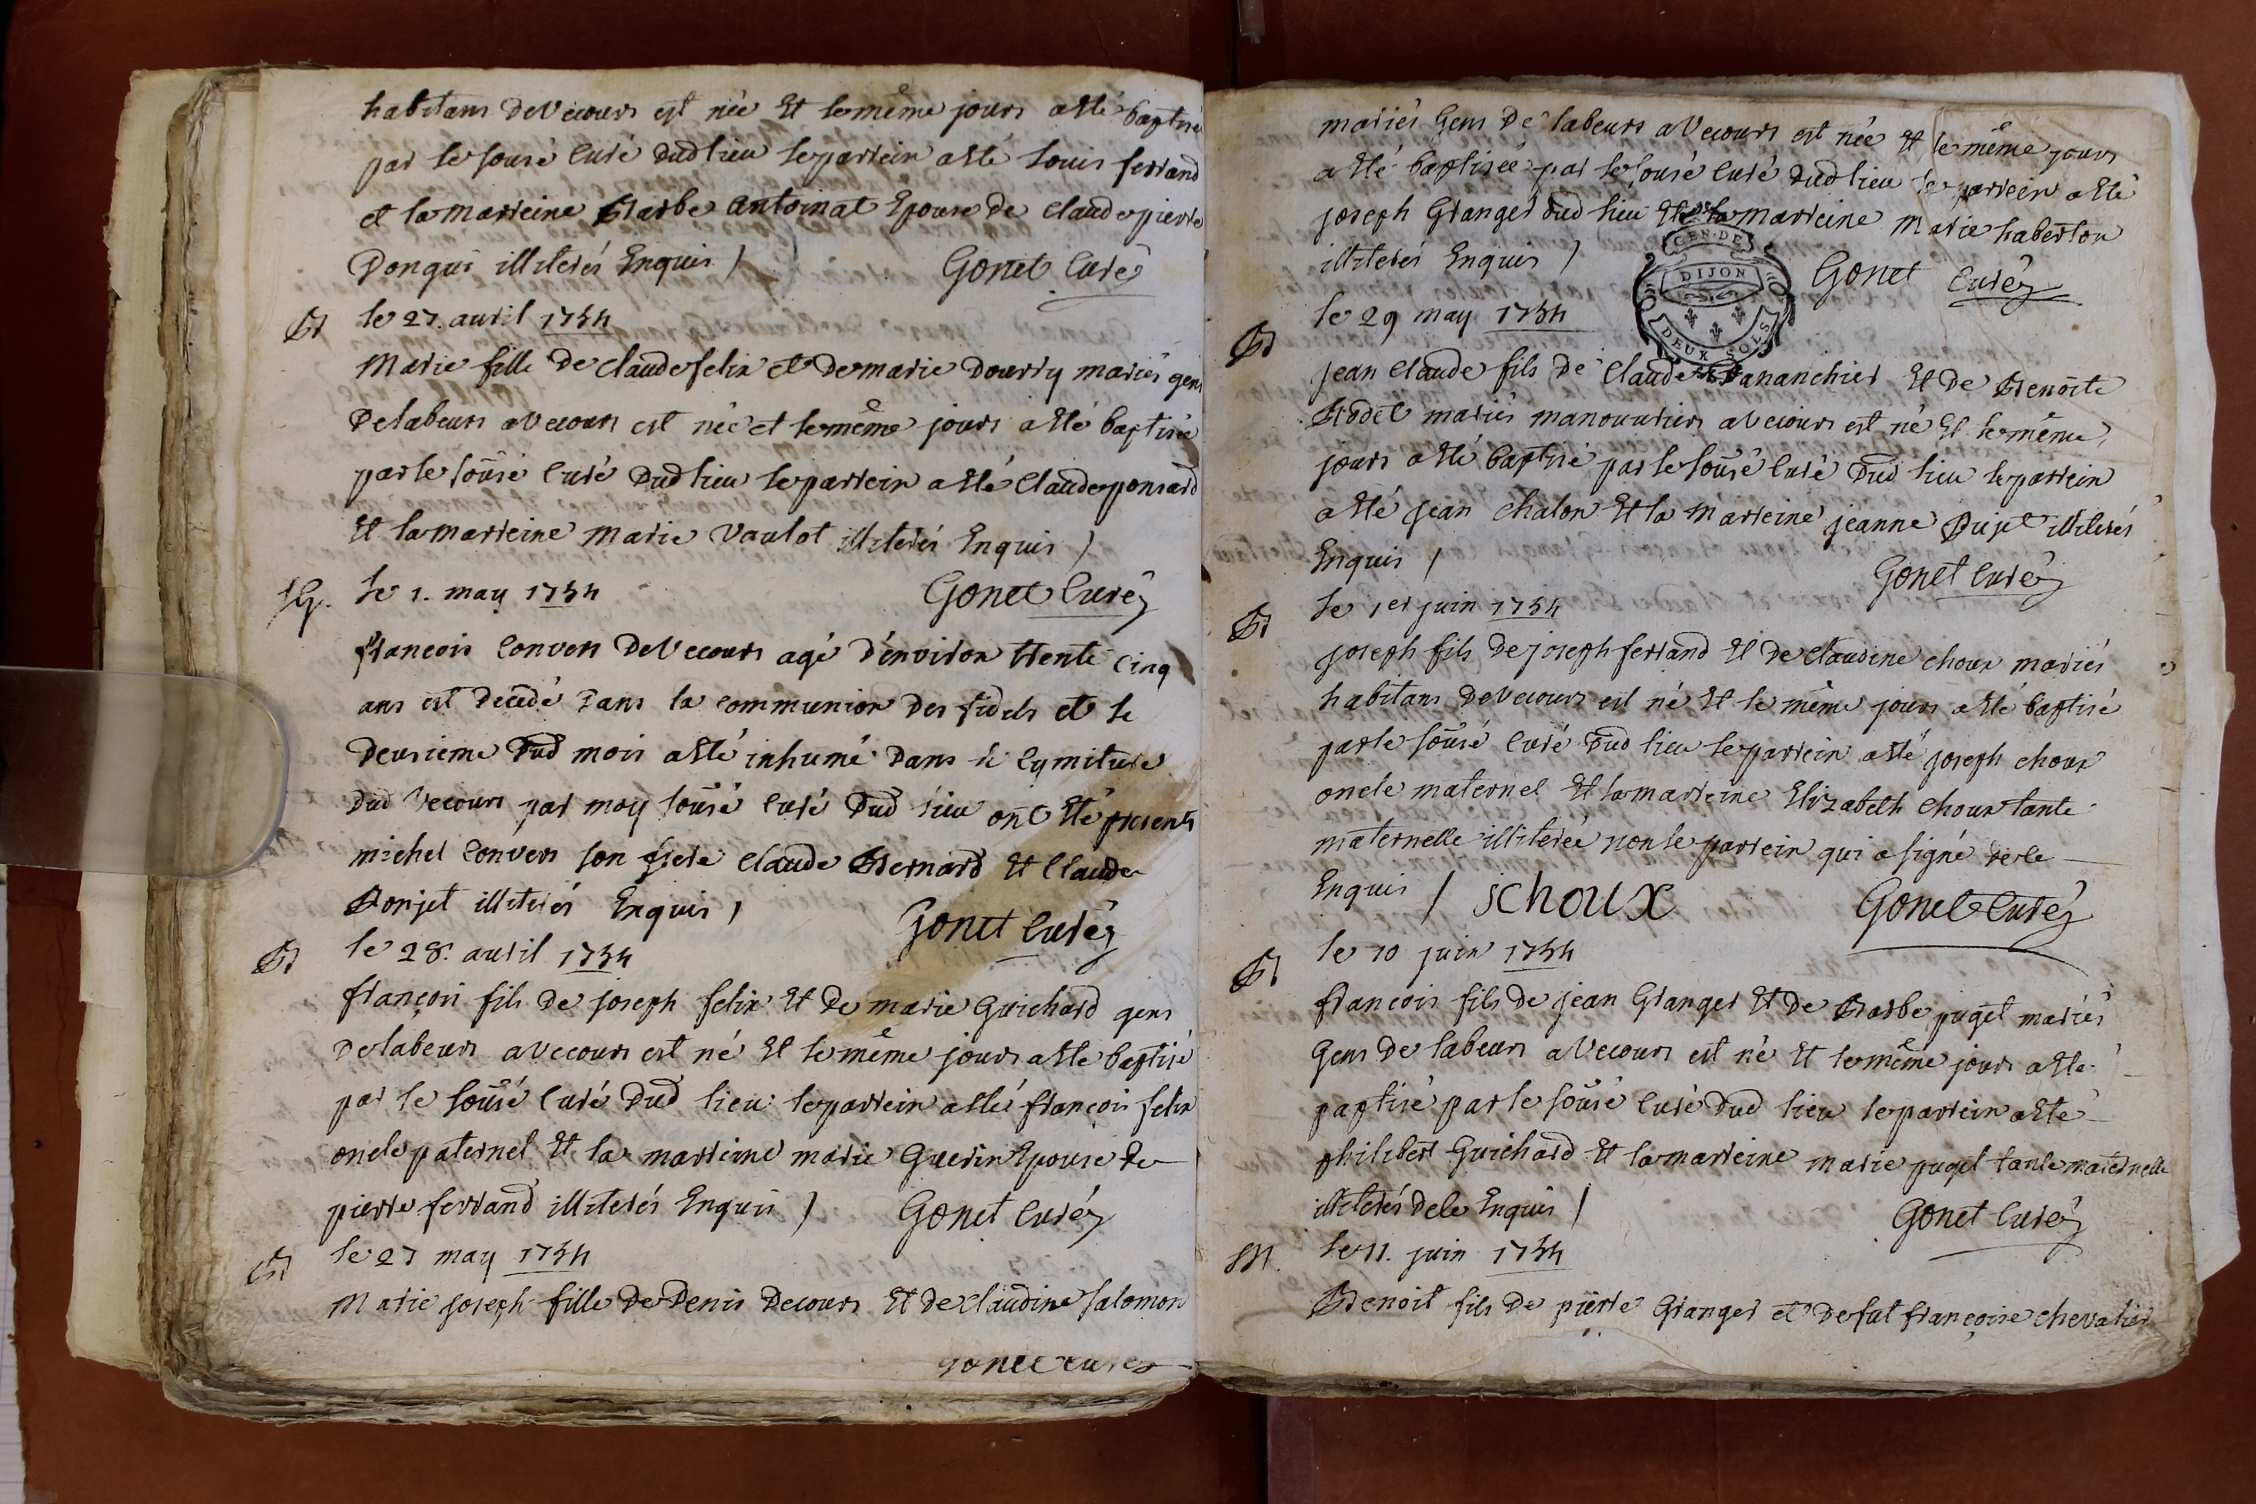 habitans de Vecours est née et le même jours a Eté baptisée
par le sousé Curé dud lieu le parrein a Eté Louis ferrand
et la marreine Barbe Antoinat Epouse de Claude pierre
Donguis illiterés Enquis / Gonet Curé
B le 27. avril 1754
Marie fille de Claude felix et de marie Dourry mariés gens
de labeurs a Vecours est née et le même jours a Eté baptisée
par le sousé Curé dud lieu le parrein a Eté Claude ponsard
Et la marreine marie Vaulot illiterés Enquis /
Sep. le 1. may 1754 Gonet Curé
françois Convers de Vecours agé d'environ trente cinq
ans est décédé dans la communion des fidels et le
deusieme dud mois a Eté inhumé dans le Cymitiere
dud Vecours par moy sousé Curé dud lieu ont Eté presents
michel Convers son frere Claude Bernard Et Claude
Bonjet illiterés Enquis / Gonet Curé
B le 28. avril 1754
françois fils de joseph felix Et de marie Guichard gens
de labeurs a Vecours est né Et le même jours a Eté baptisé
par le sousé Curé dud lieu le parrein a Eté françois felix
oncle paternel Et la marreine marie Guerin Epouse de
pierre ferrand illiterés Enquis / Gonet Curé
B le 27 may 1754
Marie joseph fille de Denis Decours Et de Claudine Salomon
Gonet Curé
mariés gens de labeurs a Vecours est née et le même jours
a Eté baptisée par le sousé Curé dud lieu le parrein a Eté
joseph Granger dud lieu Et la marreine Marie haberton
illiterés Enquis / Gonet Curé
GEN. DE
DIJON
DEUX SOLS
le 29 may 1754
B
jean Claude fils de Claude Et de Benoite
Bodet mariés manouvriers a Vecours est né Et le même
jours a Eté baptisé par le sousé Curé dud lieu le parrein
a Eté jean Chalon Et la Marreine jeanne Pujet illiterés
Enquis / Gonet Curé
B le 1er juin 1754
joseph fils de joseph ferrand Et de Claudine Choux mariés
habitans de Vecours est né Et le même jours a Eté baptisé
par le sousé Curé dud lieu le parrein a Eté joseph Choux
oncle maternel Et la marreine Elizabeth Choux tante
maternelle illiterée non le parrein qui a signé de ce
Enquis / jchoux Gonet Curé
le 10 juin 1754
B
francois fils de jean Granger Et de Barbe puget mariés
gens de labeurs a Vecours est né Et le même jours a Eté
baptisé par le sousé Curé dud lieu le parrein a Eté
philibert Guichard Et la marreine marie puget tante maternelle
illiterés de ce Enquis / Gonet Curé
M. le 11. juin 1754
Benoit fils de pierre Granger et de fut françoise chevalier